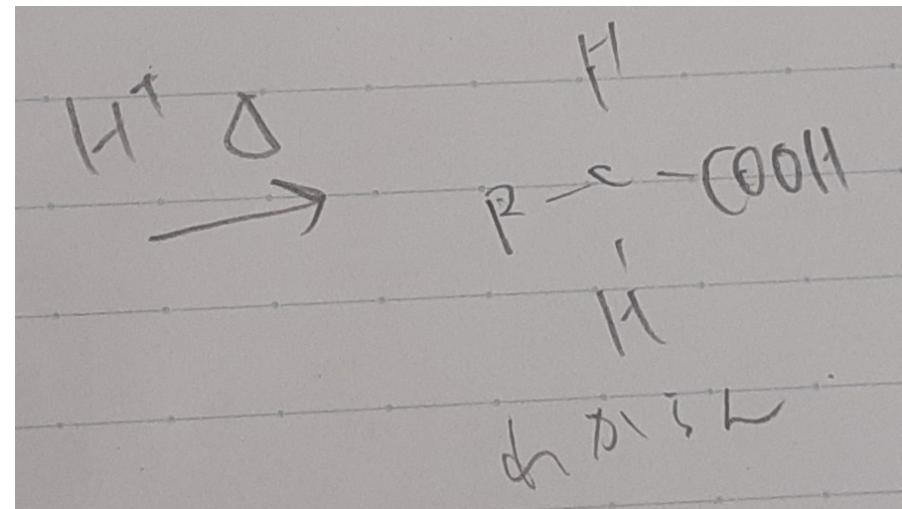 H⁺ Δ
→
H
R-C-COOH
H
わからん